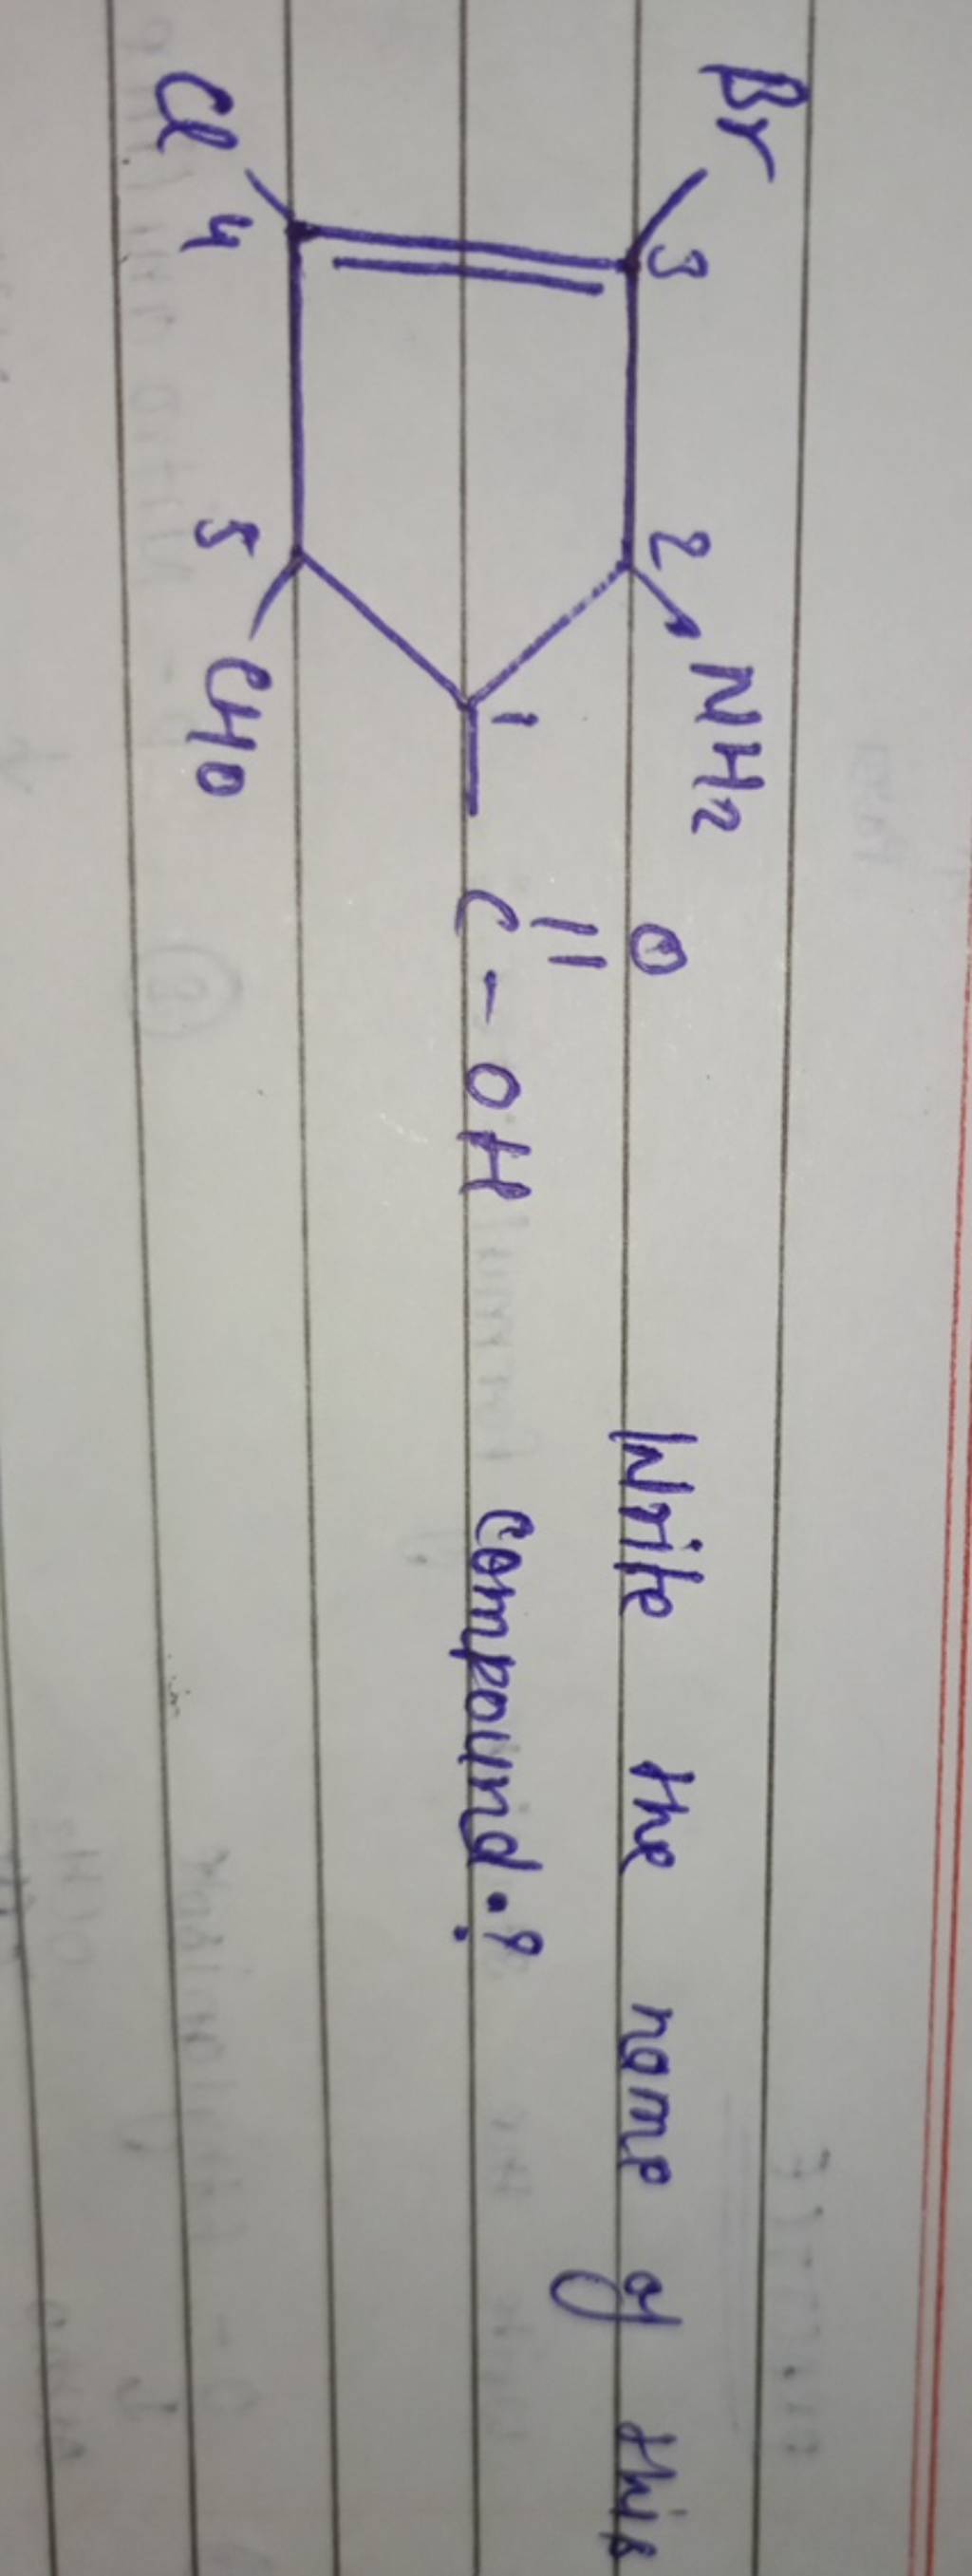 Br 3 2 NH2 O
1 C - OH
Cl 4 5 CHO
Write the name of this
compound.?